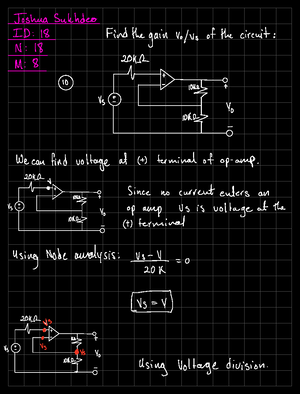 Joshua Sukhdeo
ID: 18
N: 18
M: 8
Find the gain Vo/Vs of the circuit:
10
20KΩ
10KΩ
Vs
10KΩ
Vo
We can find voltage at (+) terminal of op-amp.
20KΩ
V
Vs
10KΩ
Vo
Since no current enters an
op amp Vs is voltage at the
(+) terminal
Using Node analysis: Vs - V / 20K = 0
Vs = V
20KΩ
Vs
Vs
Vs
10KΩ
Vs
Vo
Using Voltage division.